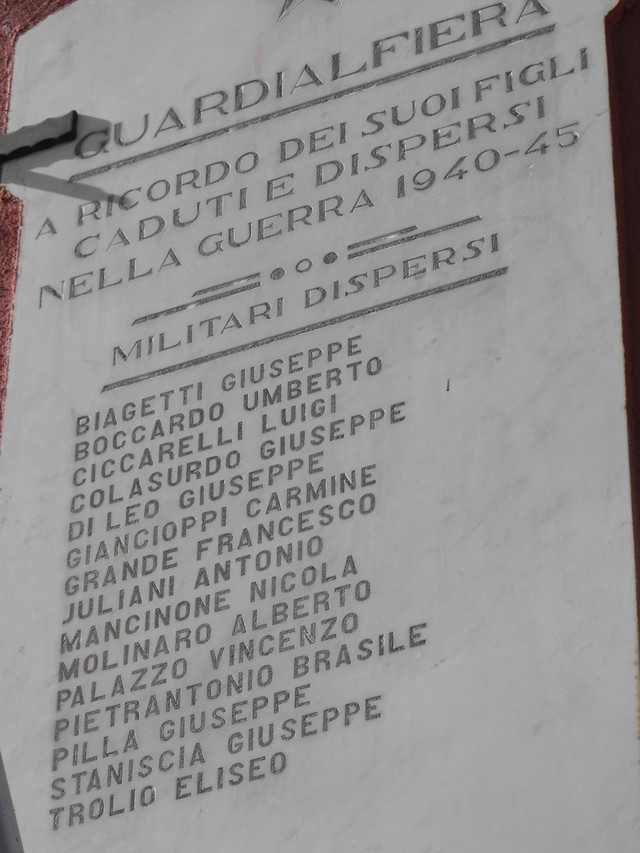 GUARDIALFIERA
A RICORDO DEI SUOI FIGLI
CADUTI E DISPERSI
NELLA GUERRA 1940-45
MILITARI DISPERSI
BIAGETTI GIUSEPPE
BOCCARDO UMBERTO
CICCARELLI LUIGI
COLASURDO GIUSEPPE
DI LEO GIUSEPPE
GIANCIOPPI CARMINE
GRANDE FRANCESCO
JULIANI ANTONIO
MANCINONE NICOLA
MOLINARO ALBERTO
PALAZZO VINCENZO
PIETRANTONIO BRASILE
PILLA GIUSEPPE
STANISCIA GIUSEPPE
TROLIO ELISEO